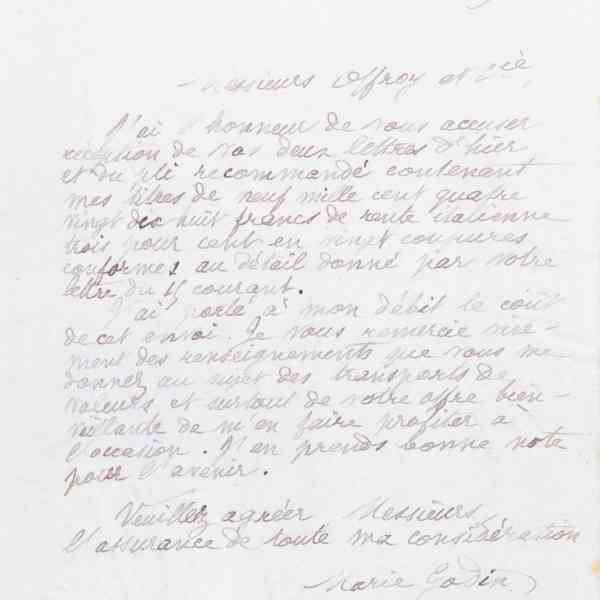 Messieurs Offroy et Cie,
J'ai l'honneur de vous accuser
réception de vos deux lettres d'hier
et du pli recommandé contenant
mes titres de neuf mille cent quatre
vingt dix huit francs de rente italienne
trois pour cent en vingt coupures
conformes au détail donné par votre
lettre du 15 courant.
J'ai porté à mon débit le coût
de cet envoi. Je vous remercie vive-
ment des renseignements que vous me
donnez au sujet des transports de
valeurs et surtout de votre offre bien-
veillante de m'en faire profiter à
l'occasion. J'en prends bonne note
pour l'avenir.
Veuillez agréer Messieurs
l'assurance de toute ma considération
Marie Godin